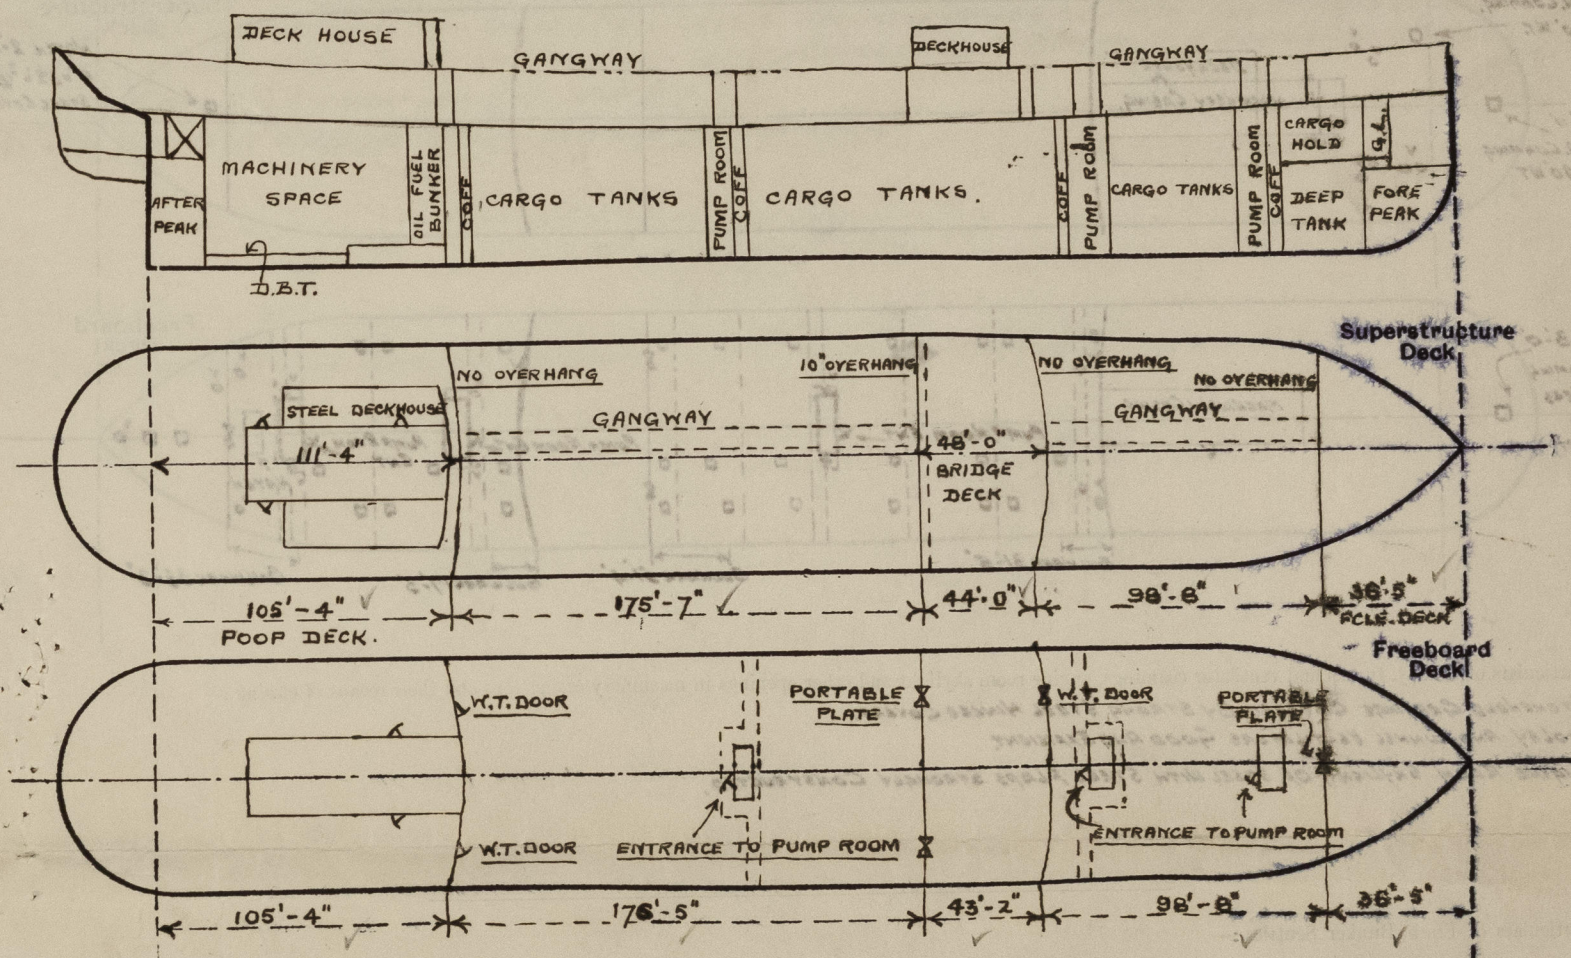 DECK HOUSE
GANGWAY
DECKHOUSE
GANGWAY
MACHINERY
SPACE
AFTER
PEAK
OIL FUEL
BUNKER
COFF
CARGO TANKS
PUMP ROOM
COFF
CARGO TANKS.
COFF
PUMP ROOM
CARGO TANKS
PUMP ROOM
COFF
CARGO
HOLD
C.L.
DEEP
TANK
FORE
PEAK
D.B.T.
Superstructure
Deck
NO OVERHANG
10" OVERHANG
NO OVERHANG
NO OVERHANG
STEEL DECKHOUSE
GANGWAY
GANGWAY
111'-4"
48'-0"
BRIDGE
DECK
105'-4"
175'-7"
44'-0"
98'-8"
36'-5"
POOP DECK.
FCLE. DECK
Freeboard
Deck
W.T. DOOR
PORTABLE
PLATE
W.T. DOOR
PORTABLE
PLATE
W.T. DOOR
ENTRANCE TO PUMP ROOM
ENTRANCE TO PUMP ROOM
105'-4"
176'-5"
43'-2"
98'-8"
36'-5"